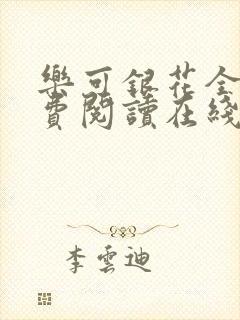 樂可銀花全
費閱讀在綫
李雲迪